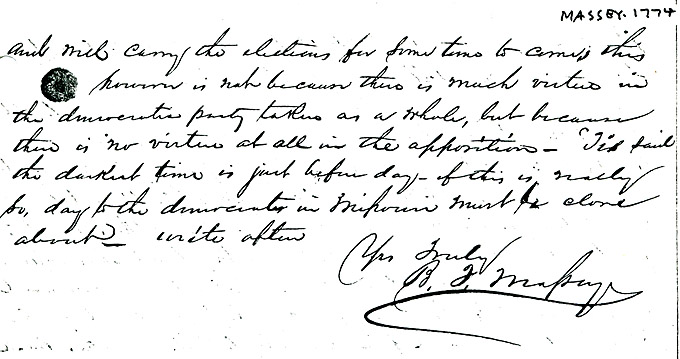 MASSEY. 1774
and will carry the elections for some time to come, this
however is not because there is much virtue in
the democratic party taken as a whole, but because
there is no virtue at all in the opposition – 'Tis said
the darkest time is just before day – if this is really
so, day to the democrats in Missouri must be close
about – write often
Yrs Truly
B. F. Massey